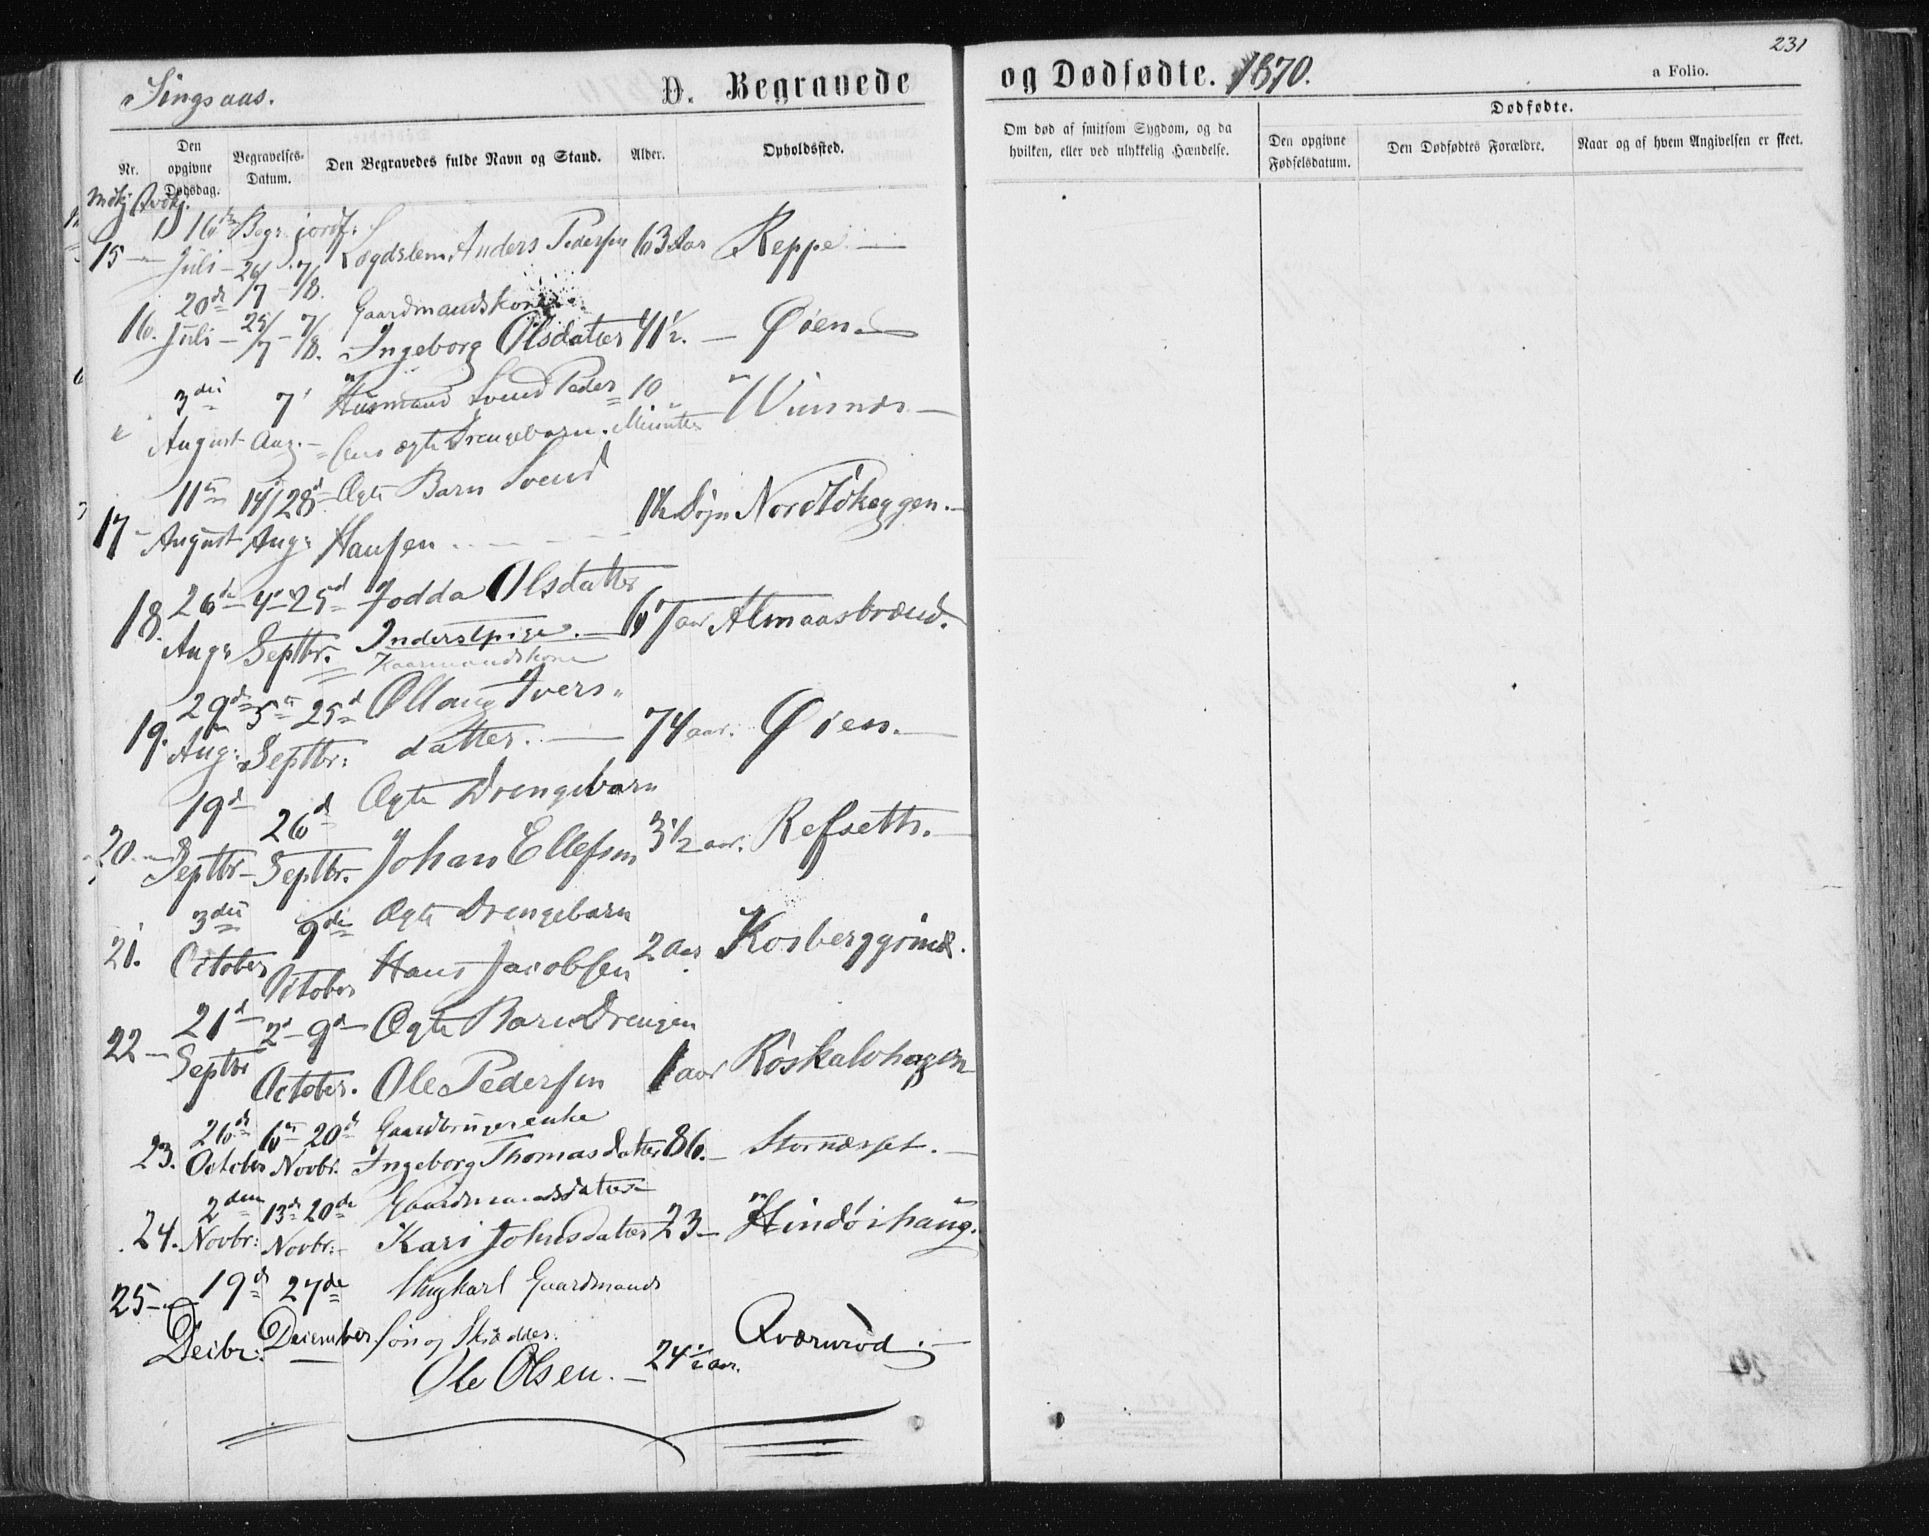 Singsaas.
D. Begravede
og Dødfødte. 1870.
231
a Folio.
Nr.
Den opgivne Dødsdag.
Begravelses-Datum.
Den Begravedes fulde Navn og Stand.
Alder.
Opholdssted.
Om død af smitsom Sygdom, og da hvilken, eller ved ulykkelig Hændelse.
Dødfødte.
Den opgivne Fødselsdatum.
Den Dødfødtes Forældre.
Naar og af hvem Angivelsen er skeet.
16de Begr. jordf:
15 — Juli — 26/7 7/8. Logdslem Anders Pedersen 63 Aar Reppe —
20de Gaardmandskone
16. Juli — 25/7 — 7/8. Ingeborg Olsdatter 41½. — Øien. —
3die 7' Husmand Svend Peder= 10 Winsnes —
" August Aug. — =sens ægte Drengebarn. Minuter
11te 14/28d Ægte Barn Svend
17 — August Aug: Hansen 1½ Døgn Nordløkeggen. —
26de 4de 25d Jodda Olsdatter
18. Aug: Septbr. Inderstpige. — 67 aar Almaasbrænd.
Gaarmandskone
29de 5te 25d Ollaug Ivers"
19. Aug: Septbr: datter. — 74 aar. Øien. —
19d 26d Ægte Drengebarn
20. — Septbr — Septbr. Johan Ellefsen 3½ aar. Refseth. —
3die 9de Ægte Drengebarn
21. October October Hans Jacobsen 2 Aar Kosberggrind.
21d 2d — 9d — Ægte Barn Drengen
22 — Septbr October. Ole Pedersen 1 aar Røskalvhagen
26de 6te 20de Gaardbrugerenke
23. October Novbr. Ingeborg Thomasdatter 86. — Stornæsset. —
2den 13de 20de Gaardmandsdatter
24. Novbr: Novbr: — Kari Johnsdatter 23 — Hindøihaug.
19d 27de Ungkarl Gaardmands
25 — Decbr: December. søn og Skrædder: Qværnrød. —
Ole Olsen. — 24½ aar.